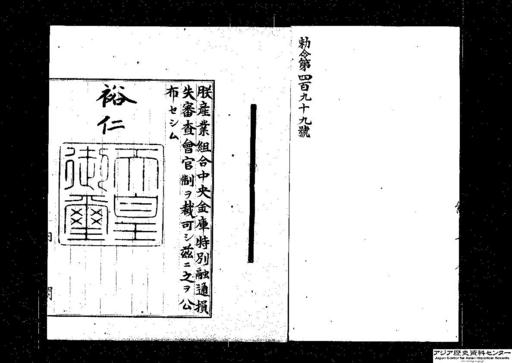 勅令第四百九十九號
朕産業組合中央金庫特別融通損
失審査會官制ヲ裁可シ茲ニ之ヲ公
布セシム
裕仁
天皇
御璽
内
閣
アジア歴史資料センター
Japan Center for Asian Historical Records